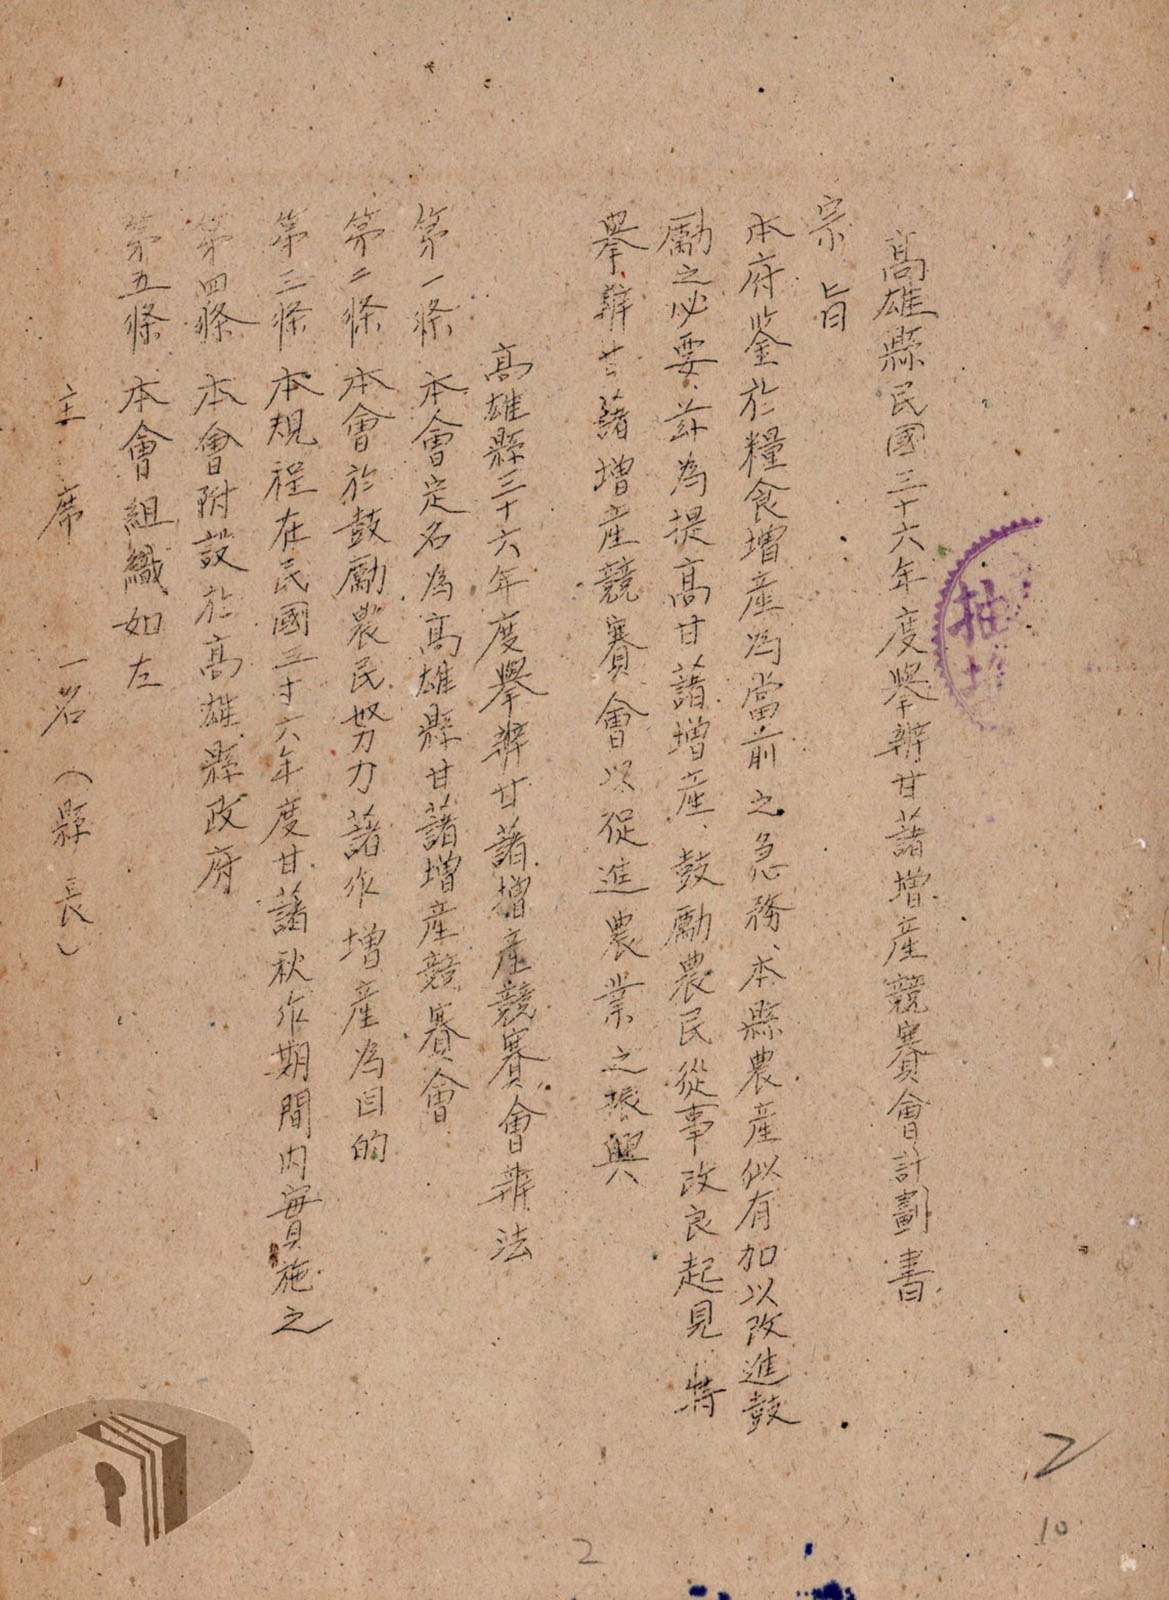 高雄縣民國三十六年度舉辦甘藷增產競賽會計劃書
宗旨
本府鉴於糧食增產為當前之急務、本縣農產似有加以改進鼓
勵之必要、茲為提高甘藷增產、鼓勵農民從事改良起見、特
舉辦甘藷增產競賽會以促進農業之振興
高雄縣三十六年度舉辦甘藷增產競賽會辦法
第一條 本會定名為高雄縣甘藷增產競賽會
第二條 本會於鼓勵農民努力藷作增產為目的
第三條 本規程在民國三十六年度甘藷秋作期間內實施之
第四條 本會附設於高雄縣政府
第五條 本會組織如左
主席 一名（縣長）
2
10
2